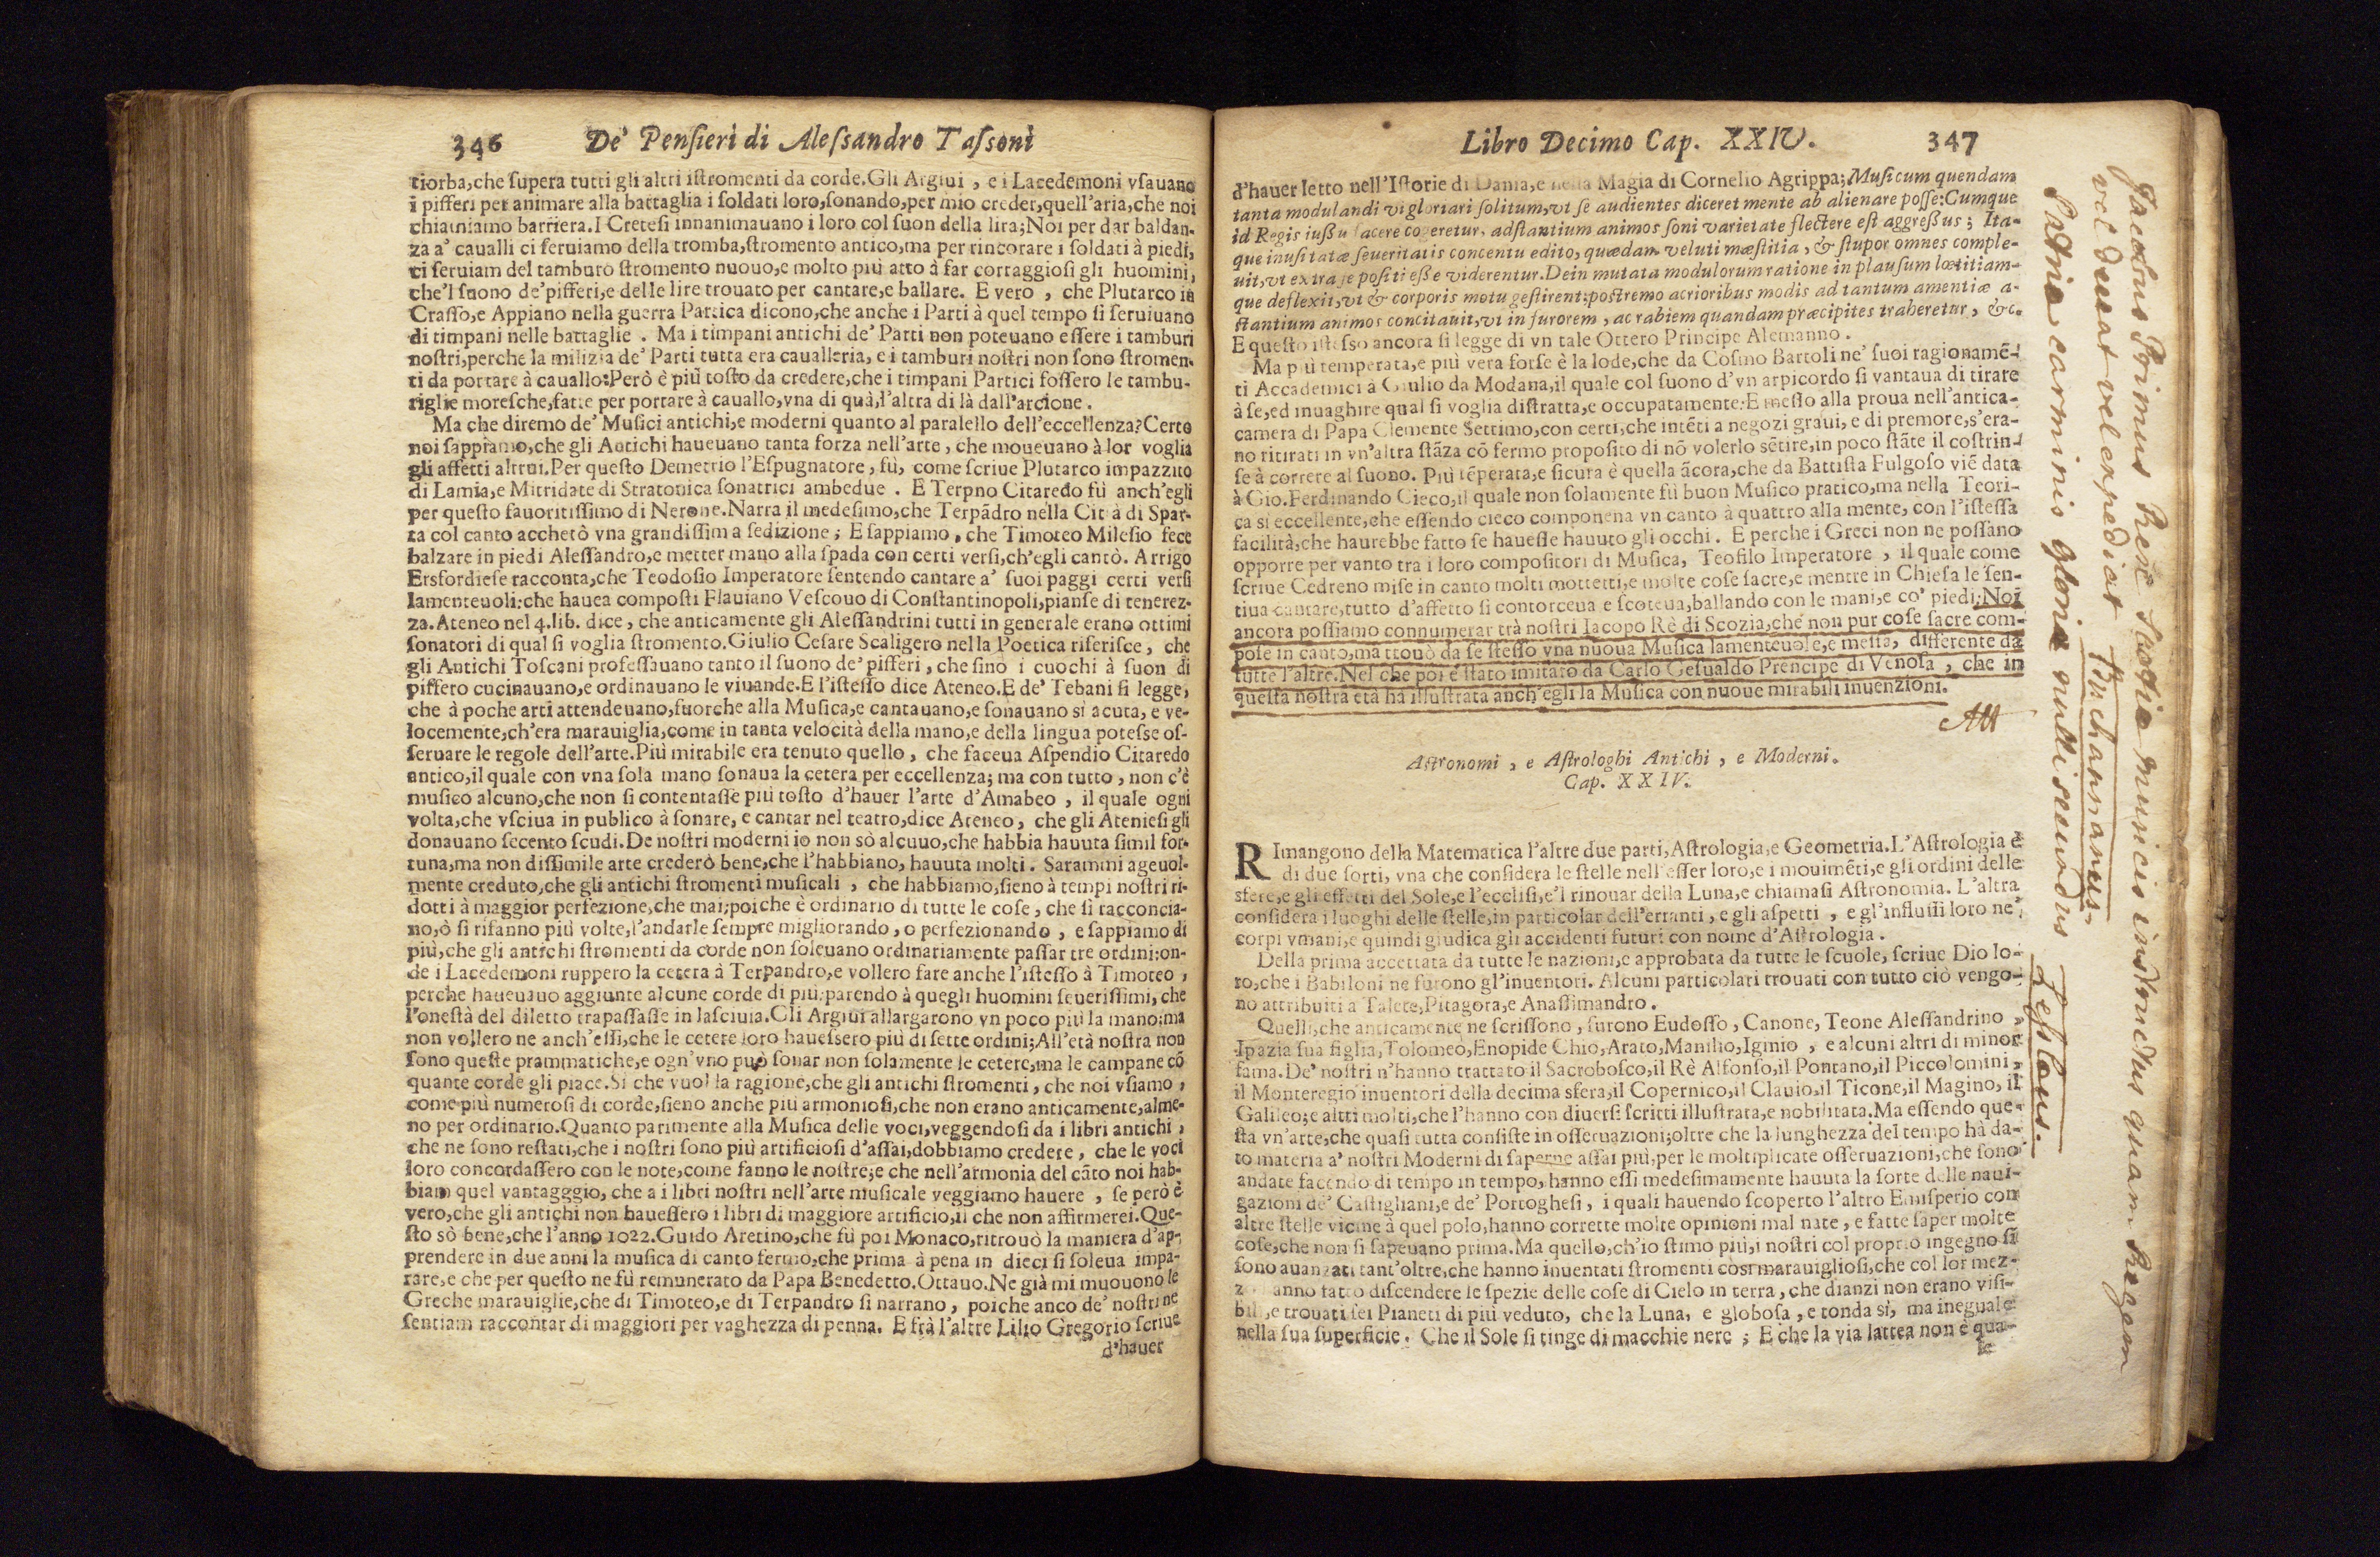 346 De' Penſieri di Aleſsandro Taſsoni
tiorba,che ſupera tutti gli altri iſtromenti da corde.Gli Argiui , e i Lacedemoni vſauano
i pifferi per animare alla battaglia i ſoldati loro,ſonando,per mio creder,quell'aria,che noi
chiamiamo barriera.I Creteſi innanimauano i loro col ſuon della lira;Noi per dar baldan-
za a' caualli ci ſeruiamo della tromba,ſtromento antico,ma per rincorare i ſoldati à piedi,
ci ſeruiam del tamburo ſtromento nuouo,e molto più atto à far corraggioſi gli huomini,
che'l ſuono de'pifferi,e delle lire trouato per cantare,e ballare. E vero , che Plutarco in
Craſſo,e Appiano nella guerra Partica dicono,che anche i Parti à quel tempo ſi ſeruiuano
di timpani nelle battaglie . Ma i timpani antichi de' Parti non poteuano eſſere i tamburi
noſtri,perche la milizia de' Parti tutta era caualleria, e i tamburi noſtri non ſono ſtromen-
ti da portare à cauallo:Però è più toſto da credere,che i timpani Partici foſſero le tambu-
riglie moreſche,fatte per portare à cauallo,vna di quà,l'altra di là dall'arcione .
Ma che diremo de' Muſici antichi,e moderni quanto al paralello dell'eccellenza?Certo
noi ſappiamo,che gli Antichi haueuano tanta forza nell'arte , che moueuano à lor voglia
gli affetti altrui.Per queſto Demetrio l'Eſpugnatore , fù, come ſcriue Plutarco impazzito
di Lamia,e Mitridate di Stratonica ſonatrici ambedue . E Terpno Citaredo fù anch'egli
per queſto fauoritiſſimo di Nerone.Narra il medeſimo,che Terpãdro nella Città di Spar-
ta col canto acchetò vna grandiſſima ſedizione ; E ſappiamo , che Timoteo Mileſio fece
balzare in piedi Aleſſandro,e metter mano alla ſpada con certi verſi,ch'egli cantò. Arrigo
Ersfordieſe racconta,che Teodoſio Imperatore ſentendo cantare a' ſuoi paggi certi verſi
lamenteuoli,che hauea compoſti Flauiano Veſcouo di Conſtantinopoli,pianſe di tenerez-
za.Ateneo nel 4.lib. dice , che anticamente gli Aleſſandrini tutti in generale erano ottimi
ſonatori di qual ſi voglia ſtromento.Giulio Ceſare Scaligero nella Poetica riferiſce , che
gli Antichi Toſcani profeſſauano tanto il ſuono de' pifferi , che ſino i cuochi à ſuon di
piffero cucinauano,e ordinauano le viuande.E l'iſteſſo dice Ateneo.E de' Tebani ſi legge,
che à poche arti attendeuano,fuorche alla Muſica,e cantauano,e ſonauano sì acuta, e ve-
locemente,ch'era marauiglia,come in tanta velocità della mano,e della lingua poteſse oſ-
ſeruare le regole dell'arte.Più mirabile era tenuto quello , che faceua Aſpendio Citaredo
antico,il quale con vna ſola mano ſonaua la cetera per eccellenza; ma con tutto , non c'è
muſico alcuno,che non ſi contentaſſe più toſto d'hauer l'arte d'Amabeo , il quale ogni
volta,che vſciua in publico à ſonare, e cantar nel teatro,dice Ateneo, che gli Atenieſi gli
donauano ſecento ſcudi.De noſtri moderni io non sò alcuuo,che habbia hauuta ſimil for-
tuna,ma non diſſimile arte crederò bene,che l'habbiano, hauuta molti . Sarammi ageuol-
mente creduto,che gli antichi ſtromenti muſicali , che habbiamo,ſieno à tempi noſtri ri-
dotti à maggior perfezione,che mai;poiche è ordinario di tutte le coſe , che ſi racconcia-
no,ò ſi rifanno più volte,l'andarle ſempre migliorando , o perfezionando , e ſappiamo di
più,che gli antichi ſtromenti da corde non ſoleuano ordinariamente paſſar tre ordini:on-
de i Lacedemoni ruppero la cetera à Terpandro,e vollero fare anche l'iſteſſo à Timoteo ,
perche haueuauo aggiunte alcune corde di più,parendo à quegli huomini ſeueriſſimi, che
l'oneſtà del diletto trapaſſaſſe in laſciuia.Gli Argiui allargarono vn poco più la mano:ma
non vollero ne anch'eſſi,che le cetere loro haueſsero più di ſette ordini;All'età noſtra non
ſono queſte prammatiche,e ogn'vno può ſonar non ſolamente le cetere,ma le campane cõ
quante corde gli piace.Si che vuol la ragione,che gli antichi ſtromenti , che noi vſiamo ,
come più numeroſi di corde,ſieno anche più armonioſi,che non erano anticamente,alme-
no per ordinario.Quanto parimente alla Muſica delle voci,veggendoſi da i libri antichi ,
che ne ſono reſtati,che i noſtri ſono più artificioſi d'aſſai,dobbiamo credere , che le voci
loro concordaſſero con le note,come fanno le noſtre;e che nell'armonia del cãto noi hab-
biam quel vantagggio, che a i libri noſtri nell'arte muſicale veggiamo hauere , ſe però è
vero,che gli antichi non haueſſero i libri di maggiore artificio,il che non affirmerei.Que-
ſto sò bene,che l'anno 1022.Guido Aretino,che fù poi Monaco,ritrouò la maniera d'ap-
prendere in due anni la muſica di canto fermo,che prima à pena in dieci ſi ſoleua impa-
rare,e che per queſto ne fù remunerato da Papa Benedetto.Ottauo.Ne già mi muouono le
Greche marauiglie,che di Timoteo,e di Terpandro ſi narrano , poiche anco de' noſtri ne
ſentiam raccontar di maggiori per vaghezza di penna. E frà l'altre Lilio Gregorio ſcriue
d'hauer
Libro Decimo Cap. XXIV. 347
d'hauer letto nell'Iſtorie di Dania,e nella Magia di Cornelio Agrippa;Muſicum quendam
tanta modulandi vi gloriari ſolitum,vt ſe audientes diceret mente ab alienare poſſe:Cumque
id Regis iuſſu facere cogeretur, adſtantium animos ſoni varietate flectere eſt aggreßus ; Ita-
que inuſitatæ ſeueritatis concentu edito, quædam veluti mæſtitia , & ſtupor omnes comple-
uit,vt extra ſe poſiti eße viderentur.Dein mutata modulorum ratione in plauſum lætitiam-
que deflexit,vt & corporis motu geſtirent:poſtremo acrioribus modis ad tantum amentiæ a-
ſtantium animos concitauit,vt in furorem , ac rabiem quandam præcipites traheretur , &c.
E queſto iſteſso ancora ſi legge di vn tale Ottero Principe Alemanno .
Ma più temperata,e più vera forſe è la lode,che da Coſmo Bartoli ne' ſuoi ragionamẽ-
ti Accademici à Giulio da Modana,il quale col ſuono d'vn arpicordo ſi vantaua di tirare
à ſe,ed inuaghire qual ſi voglia diſtratta,e occupatamente:E meſſo alla proua nell'antica-
camera di Papa Clemente Settimo,con certi,che intẽti a negozi graui, e di premore,s'era-
no ritirati in vn'altra ſtãza cõ fermo propoſito di nõ volerlo sẽtire,in poco ſtãte il coſtrin-
ſe à correre al ſuono. Più tẽperata,e ſicura è quella ãcora,che da Battiſta Fulgoſo viẽ data
à Gio.Ferdinando Cieco,il quale non ſolamente fù buon Muſico pratico,ma nella Teori-
ca si eccellente,che eſſendo cieco componena vn canto à quattro alla mente, con l'iſteſſa
facilità,che haurebbe fatto ſe haueſſe hauuto gli occhi. E perche i Greci non ne poſſano
opporre per vanto tra i loro compoſitori di Muſica, Teofilo Imperatore , il quale come
ſcriue Cedreno miſe in canto molti mottetti,e molte coſe ſacre,e mentre in Chieſa le ſen-
tiua cantare,tutto d'affetto ſi contorceua e ſcoteua,ballando con le mani,e co' piedi;Noi
ancora poſſiamo connumerar trà noſtri Iacopo Rè di Scozia,che non pur coſe ſacre com-
poſe in canto,ma trouò da ſe ſteſſo vna nuoua Muſica lamenteuole,e meſta, differente da
tutte l'altre.Nel che poi è ſtato imitato da Carlo Geſualdo Prencipe di Venoſa , che in
queſta noſtra età hà illuſtrata anch'egli la Muſica con nuoue mirabili inuenzioni.
Aſtronomi , e Aſtrologhi Antichi , e Moderni.
Cap. XXIV.
RImangono della Matematica l'altre due parti,Aſtrologia,e Geometria.L'Aſtrologia è
di due ſorti, vna che conſidera le ſtelle nell'eſſer loro,e i mouimẽti,e gli ordini delle
sfere,e gli effetti del Sole,e l'eccliſi,e'l rinouar della Luna,e chiamaſi Aſtronomia. L'altra
conſidera i luoghi delle ſtelle,in particolar dell'erranti , e gli aſpetti , e gl'influſſi loro ne'
corpi vmani,e quindi giudica gli accidenti futuri con nome d'Aſtrologia .
Della prima accettata da tutte le nazioni,e approbata da tutte le ſcuole, ſcriue Dio lo-
ro,che i Babiloni ne furono gl'inuentori. Alcuni particolari trouati con tutto ciò vengo-
no attribuiti a Talete,Pitagora,e Anaſſimandro .
Quelli,che anticamente ne ſcriſſono , furono Eudoſſo , Canone, Teone Aleſſandrino ,
Ipazia ſua figlia,Tolomeo,Enopide Chio,Arato,Manilio,Iginio , e alcuni altri di minor
fama.De' noſtri n'hanno trattato il Sacroboſco,il Rè Alfonſo,il Pontano,il Piccolomini ,
il Monteregio inuentori della decima sfera,il Copernico,il Clauio,il Ticone,il Magino, il
Galileo;e altri molti,che l'hanno con diuerſi ſcritti illuſtrata,e nobilitata.Ma eſſendo que-
ſta vn'arte,che quaſi tutta conſiſte in oſſeruazioni;oltre che la lunghezza del tempo hà da-
to materia a' noſtri Moderni di ſaperne aſſai più,per le moltiplicate oſſeruazioni,che ſono
andate facendo di tempo in tempo, hanno eſſi medeſimamente hauuta la ſorte delle naui-
gazioni de' Caſtigliani,e de' Portogheſi , i quali hauendo ſcoperto l'altro Emiſperio con
altre ſtelle vicine à quel polo,hanno corrette molte opinioni mal nate , e fatte ſaper molte
coſe,che non ſi ſapeuano prima.Ma quello,ch'io ſtimo più,i noſtri col proprio ingegno ſi
ſono auanzati tant'oltre,che hanno inuentati ſtromenti cosi marauiglioſi,che col lor mez-
z anno fatto diſcendere le ſpezie delle coſe di Cielo in terra , che dianzi non erano viſi-
bili,e trouati ſei Pianeti di più veduto, che la Luna, e globoſa , e tonda sì, ma ineguale
nella ſua ſuperficie. Che il Sole ſi tinge di macchie nere ; E che la via lattea non è qua-
ſe
Jacobus Primus Rex Scotiæ musicis instructus quam Regem
vel deceat vel expediat Buchannanus.
Patrio carminis gloria nulli secundus Leslæus.